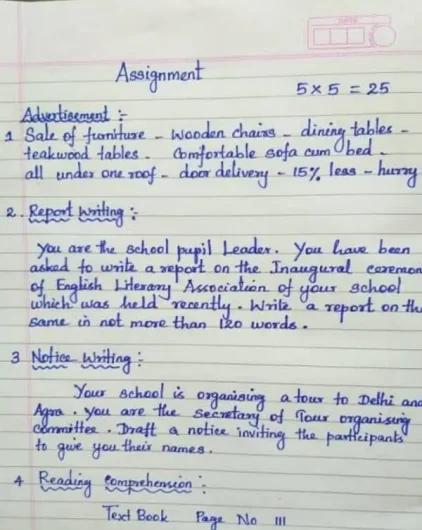 DATE
Assignment
5 × 5 = 25
Advertisement :-
1 Sale of furniture - Wooden chairs - dining tables -
teakwood tables. Comfortable sofa cum bed.
all under one roof - door delivery - 15% less - hurry
2. Report Writing :-
You are the school pupil Leader. You have been
asked to write a report on the Inaugural ceremon
of English Literary Association of your school
which was held recently. Write a report on the
same in not more than 120 words.
3 Notice Writing :-
Your school is organising a tour to Delhi and
Agra. You are the Secretary of Tour organising
committee. Draft a notice inviting the participants
to give you their names.
4 Reading Comprehension :-
Text Book Page No 111